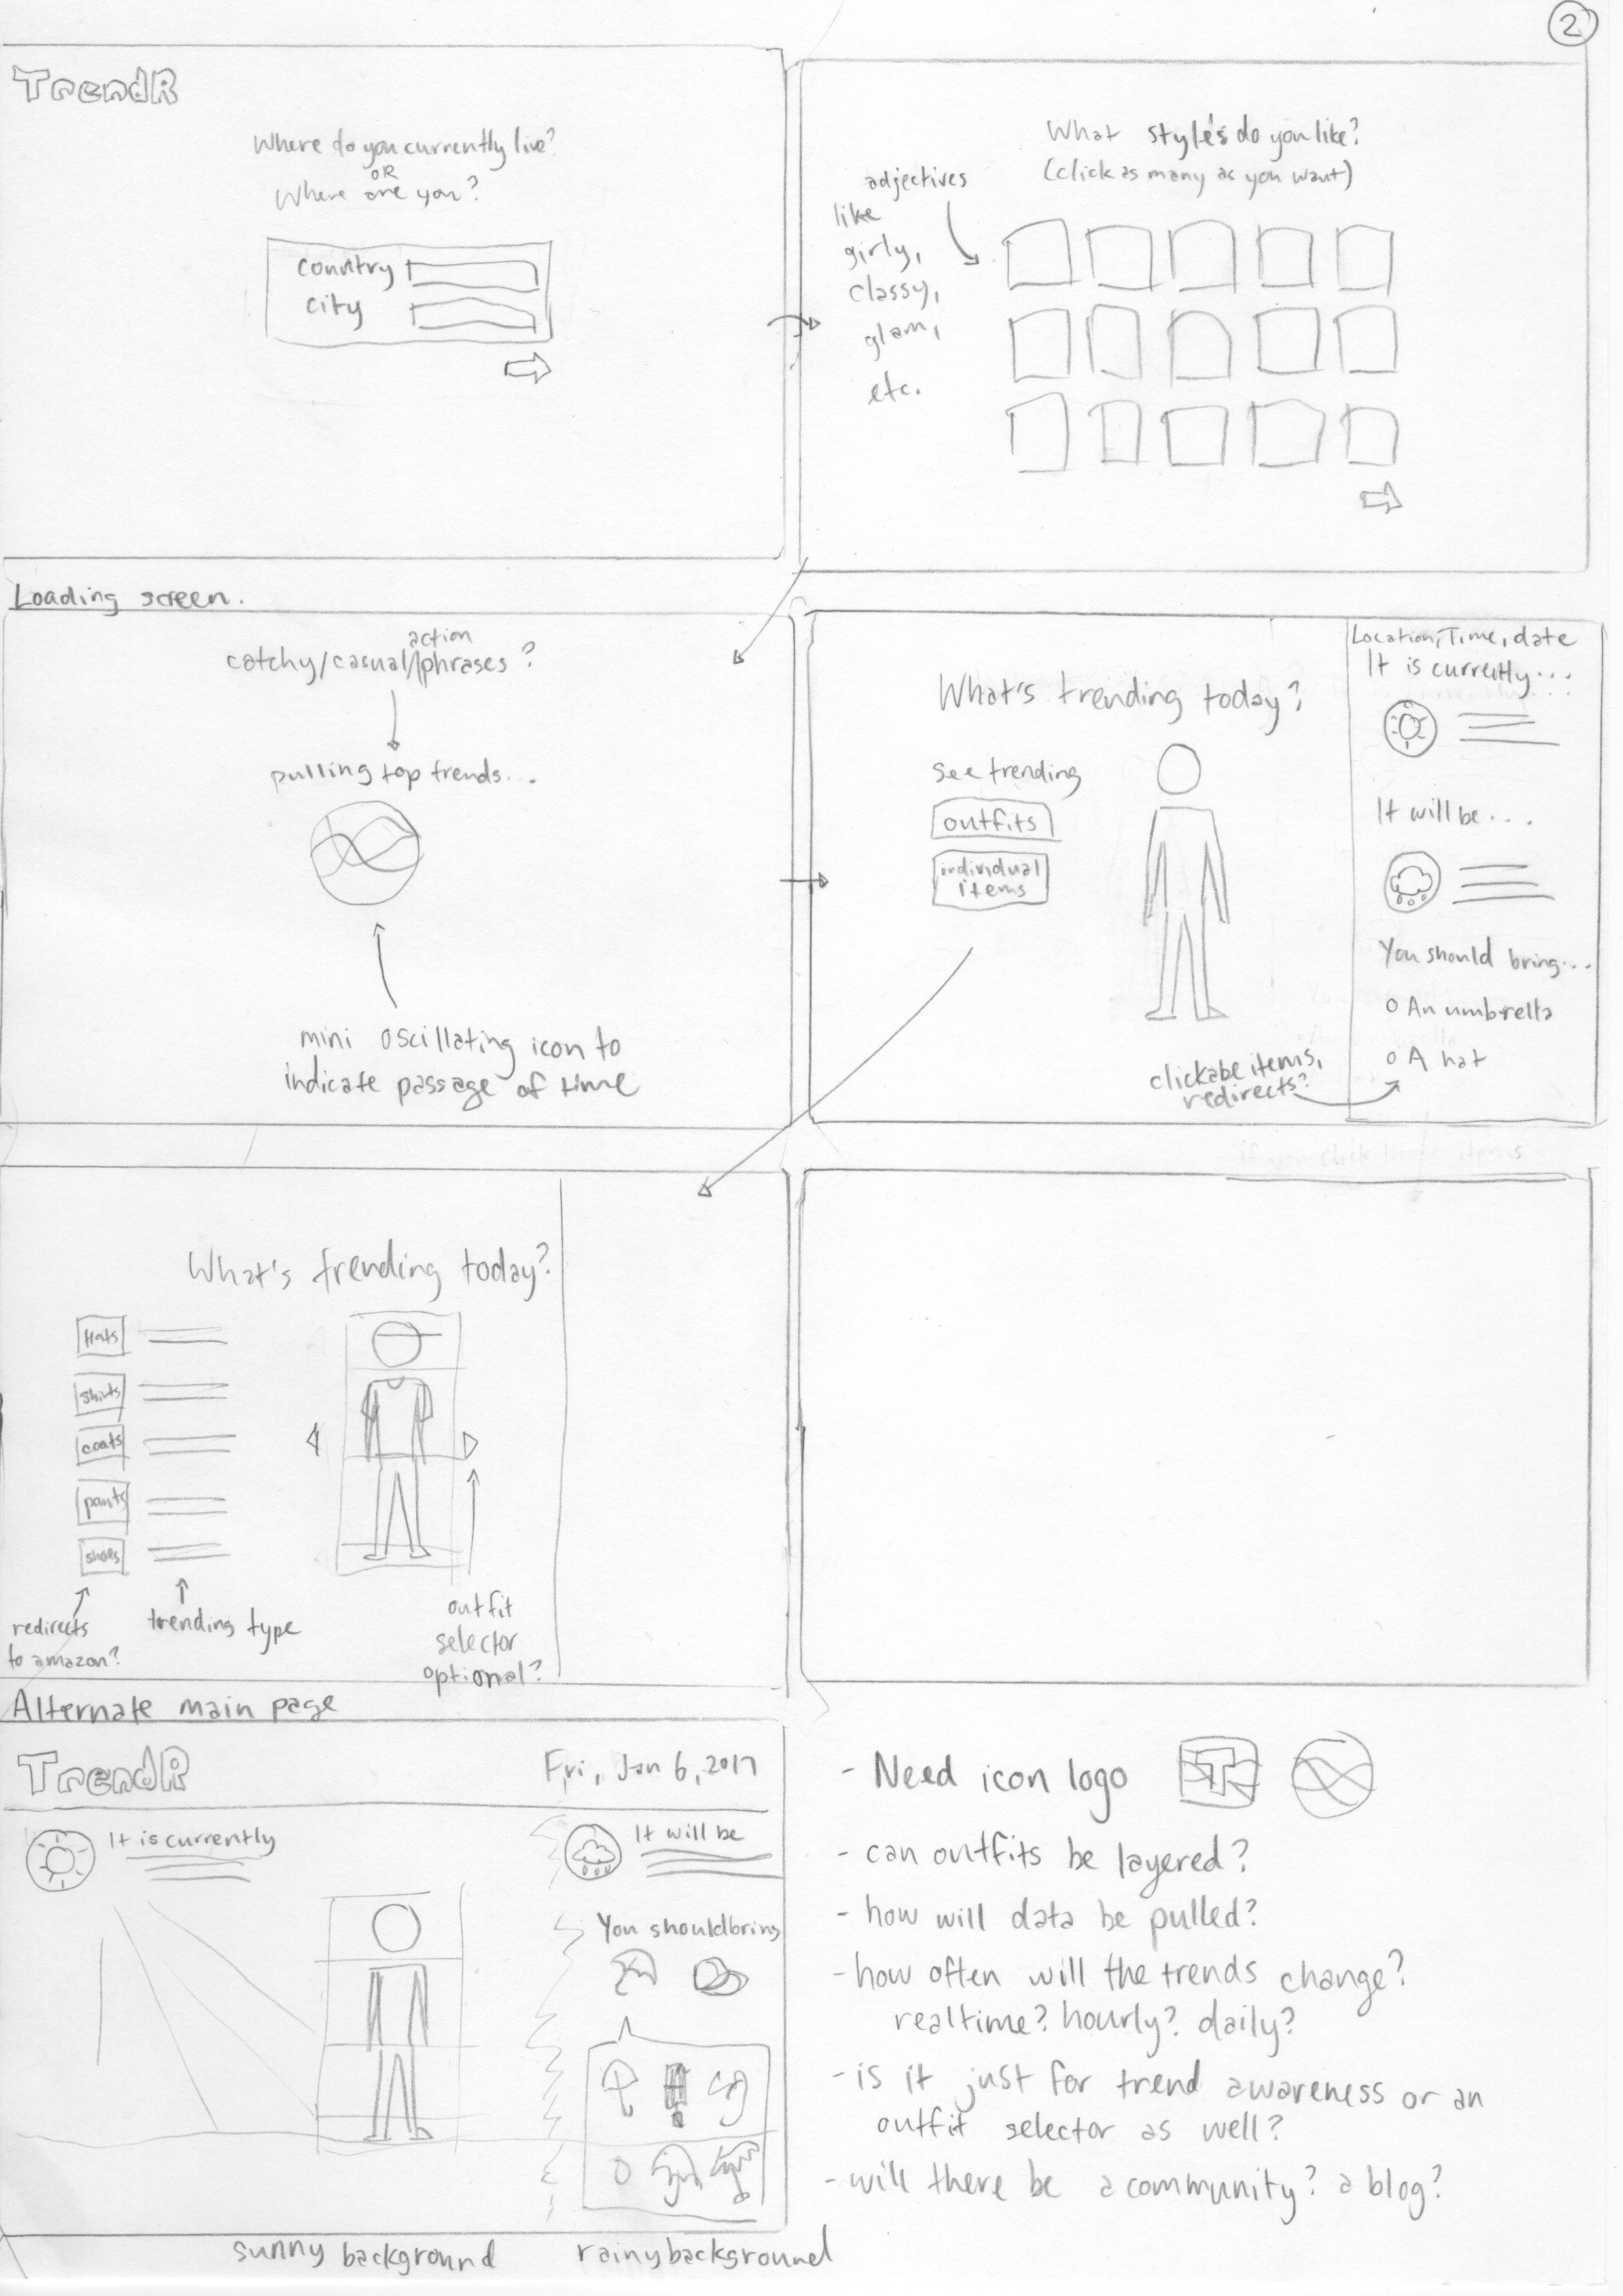 2
TrendR
Where do you currently live?
OR
Where are you?
country
city
What style's do you like?
(click as many as you want)
adjectives
like
girly,
classy,
glam,
etc.
Loading screen.
action
catchy/casual/phrases?
pulling top trends...
mini oscillating icon to
indicate passage of time
What's trending today?
see trending
outfits
individual
items
Location, Time, date
It is currently...
It will be...
You should bring...
o An umbrella
o A hat
clickabe items,
redirects?
if you click those items
What's trending today?
Hats
shirts
coats
pants
shoes
redirects
to amazon?
trending type
outfit
selector
optional?
Alternate main page
TrendR
Fri, Jan 6, 2017
It is currently
It will be
You should bring
sunny background
rainy background
- Need icon logo
T
- can outfits be layered?
- how will data be pulled?
- how often will the trends change?
realtime? hourly? daily?
- is it just for trend awareness or an
outfit selector as well?
- will there be a community? a blog?